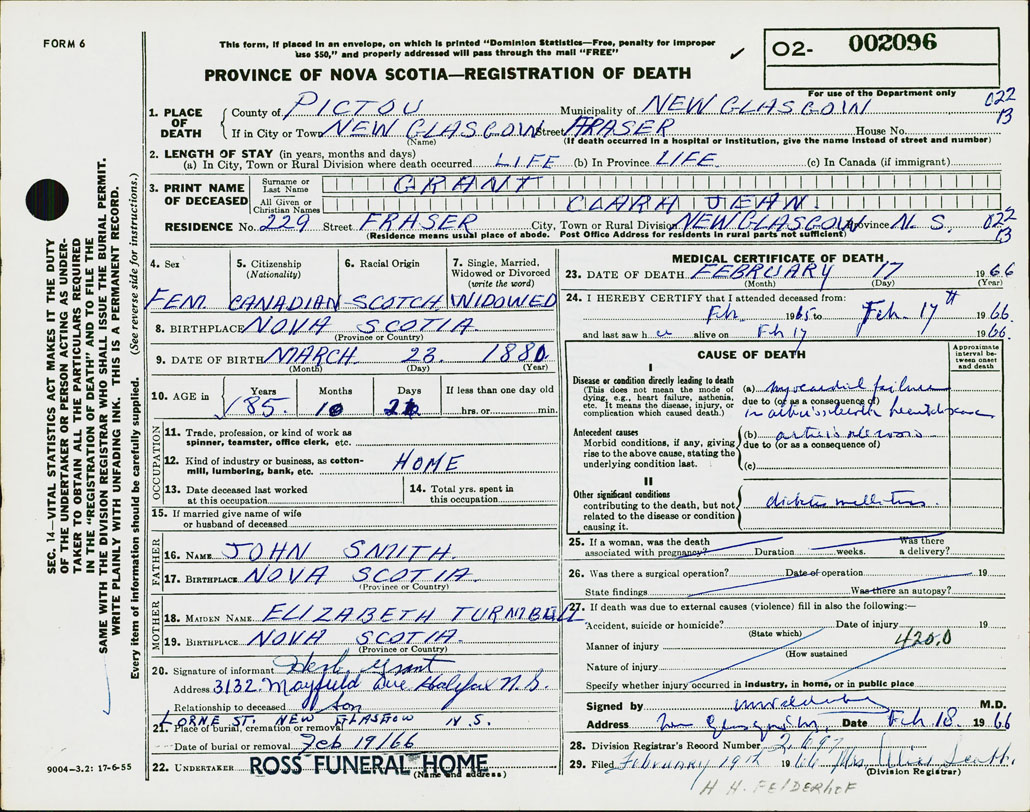 FORM 6
This form, if placed in an envelope, on which is printed "Dominion Statistics—Free, penalty for improper
use $50," and properly addressed will pass through the mail "FREE"
✓
O2- 002096
For use of the Department only
PROVINCE OF NOVA SCOTIA—REGISTRATION OF DEATH
022
13
1. PLACE OF DEATH
County of PICTOU Municipality of NEW GLASGOW
If in City or Town NEW GLASGOW Street FRASER House No.
(Name) (If death occurred in a hospital or institution, give the name instead of street and number)
2. LENGTH OF STAY (in years, months and days)
(a) In City, Town or Rural Division where death occurred LIFE (b) In Province LIFE (c) In Canada (if immigrant)
3. PRINT NAME OF DECEASED
Surname or Last Name GRANT
All Given or Christian Names CLARA JEAN.
RESIDENCE No. 229 Street FRASER City, Town or Rural Division NEW GLASGOW Province N. S. 022
13
(Residence means usual place of abode. Post Office Address for residents in rural parts not sufficient)
4. Sex FEM.
5. Citizenship (Nationality) CANADIAN
6. Racial Origin SCOTCH
7. Single, Married, Widowed or Divorced (write the word) WIDOWED
8. BIRTHPLACE NOVA SCOTIA.
(Province or Country)
9. DATE OF BIRTH MARCH. 23. 1880
(Month) (Day) (Year)
10. AGE in Years 85. Months 10 Days If less than one day old hrs. or min.
OCCUPATION
11. Trade, profession, or kind of work as
spinner, teamster, office clerk, etc.
12. Kind of industry or business, as cotton-
mill, lumbering, bank, etc. HOME
13. Date deceased last worked
at this occupation
14. Total yrs. spent in
this occupation
15. If married give name of wife
or husband of deceased
FATHER
16. NAME JOHN SMITH.
17. BIRTHPLACE NOVA SCOTIA.
(Province or Country)
MOTHER
18. MAIDEN NAME ELIZABETH TURNBULL
19. BIRTHPLACE NOVA SCOTIA.
(Province or Country)
20. Signature of informant Herb Grant
Address 3132. Mayfield Ave Halifax N.S.
Relationship to deceased son
LORNE ST. NEW GLASGOW N.S.
21. Place of burial, cremation or removal
Date of burial or removal Feb 19/66
22. UNDERTAKER ROSS FUNERAL HOME
(Name and address)
MEDICAL CERTIFICATE OF DEATH
23. DATE OF DEATH FEBRUARY 17 1966
(Month) (Day) (Year)
24. I HEREBY CERTIFY that I attended deceased from:
Feb. 1965 to Feb. 17th 1966.
and last saw her alive on Feb 17 1966.
CAUSE OF DEATH
Approximate interval between onset and death
I
Disease or condition directly leading to death
(This does not mean the mode of
dying, e.g., heart failure, asthenia,
etc. It means the disease, injury, or
complication which caused death.)
(a) myocardial failure
due to (or as a consequence of)
in heart disease
Antecedent causes
Morbid conditions, if any, giving
rise to the above cause, stating the
underlying condition last.
(b) arteriosclerosis
due to (or as a consequence of)
(c)
II
Other significant conditions
contributing to the death, but not
related to the disease or condition
causing it.
diabetes mellitus.
25. If a woman, was the death
associated with pregnancy? Duration weeks. Was there a delivery?
26. Was there a surgical operation? Date of operation 19
State findings Was there an autopsy?
27. If death was due to external causes (violence) fill in also the following:—
Accident, suicide or homicide? Date of injury 19
(State which)
Manner of injury 420.0
(How sustained
Nature of injury
Specify whether injury occurred in industry, in home, or in public place
Signed by M.D.
Address New Glasgow Date Feb 18. 1966
28. Division Registrar's Record Number
29. Filed February 19th 1966 Mrs
(Division Registrar)
H H. FELDERHOF
SEC. 14—VITAL STATISTICS ACT MAKES IT THE DUTY
OF THE UNDERTAKER OR PERSON ACTING AS UNDER-
TAKER TO OBTAIN ALL THE PARTICULARS REQUIRED
IN THE "REGISTRATION OF DEATH" AND TO FILE THE
SAME WITH THE DIVISION REGISTRAR WHO SHALL ISSUE THE BURIAL PERMIT.
WRITE PLAINLY WITH UNFADING INK. THIS IS A PERMANENT RECORD.
Every item of information should be carefully supplied. (See reverse side for instructions.)
9004-3.2: 17-6-55